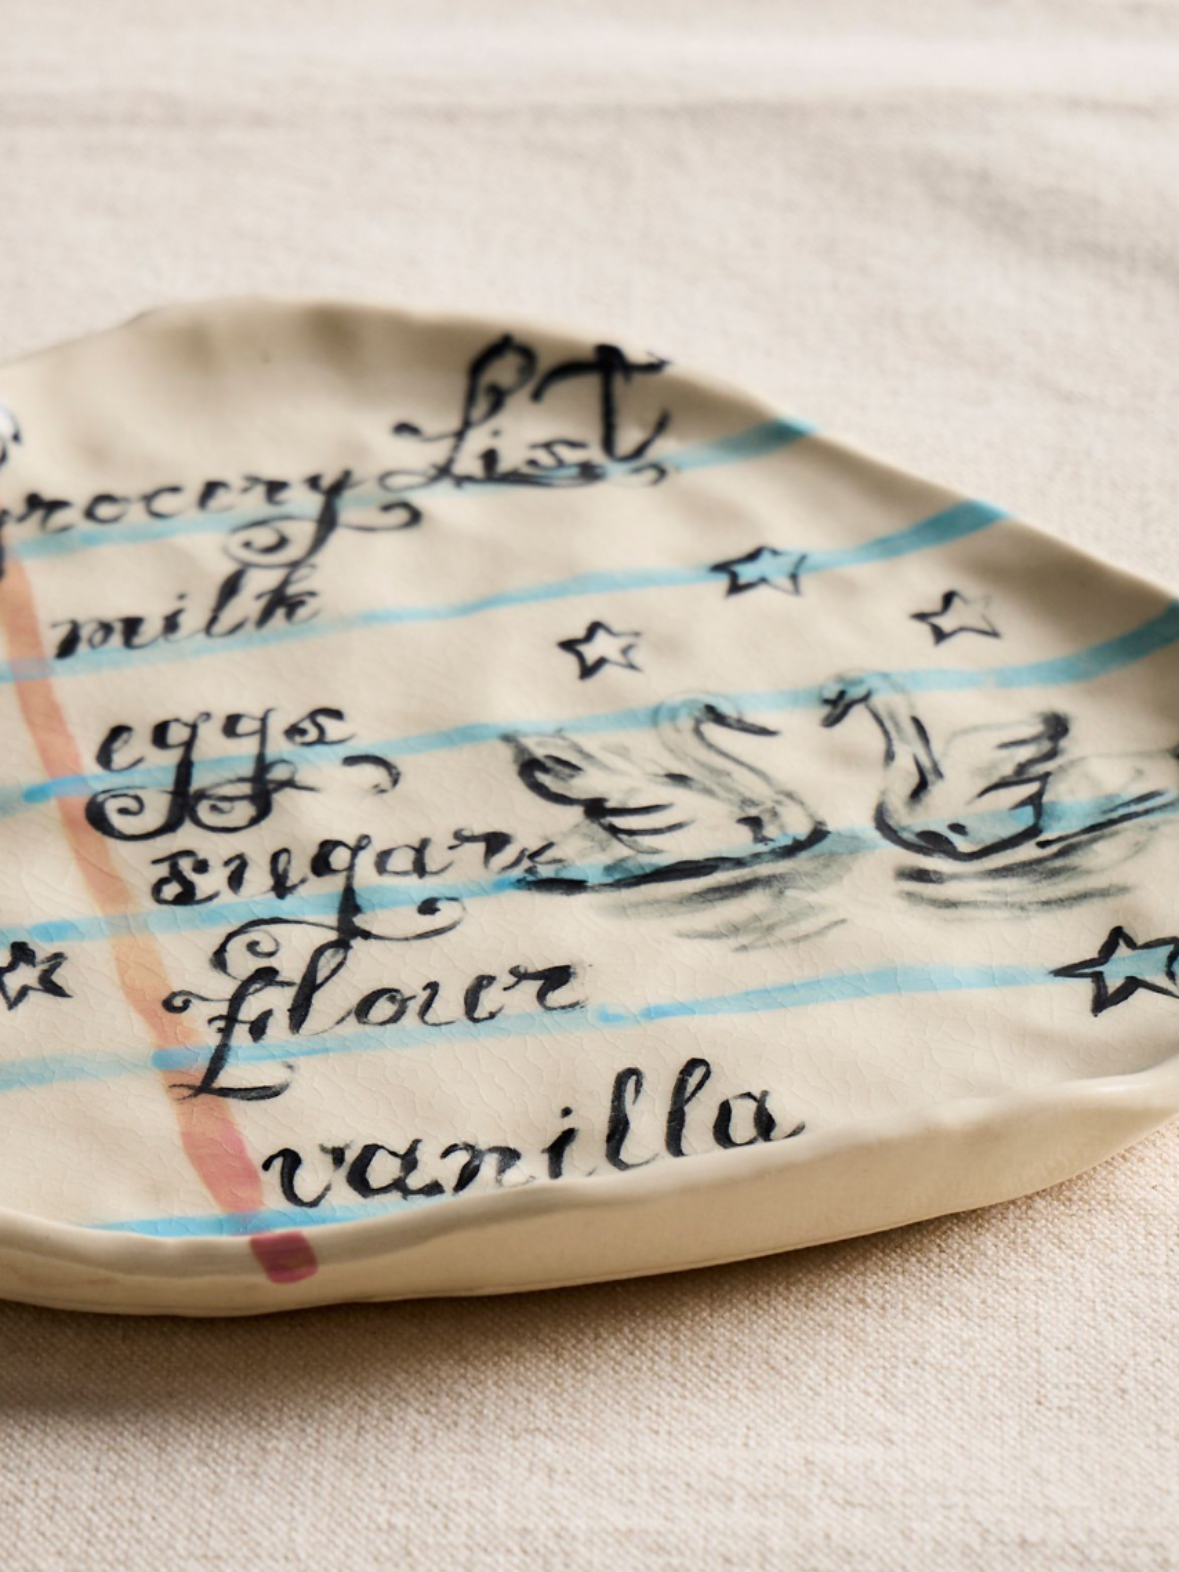 Grocery List
milk
eggs
sugar
Flour
vanilla